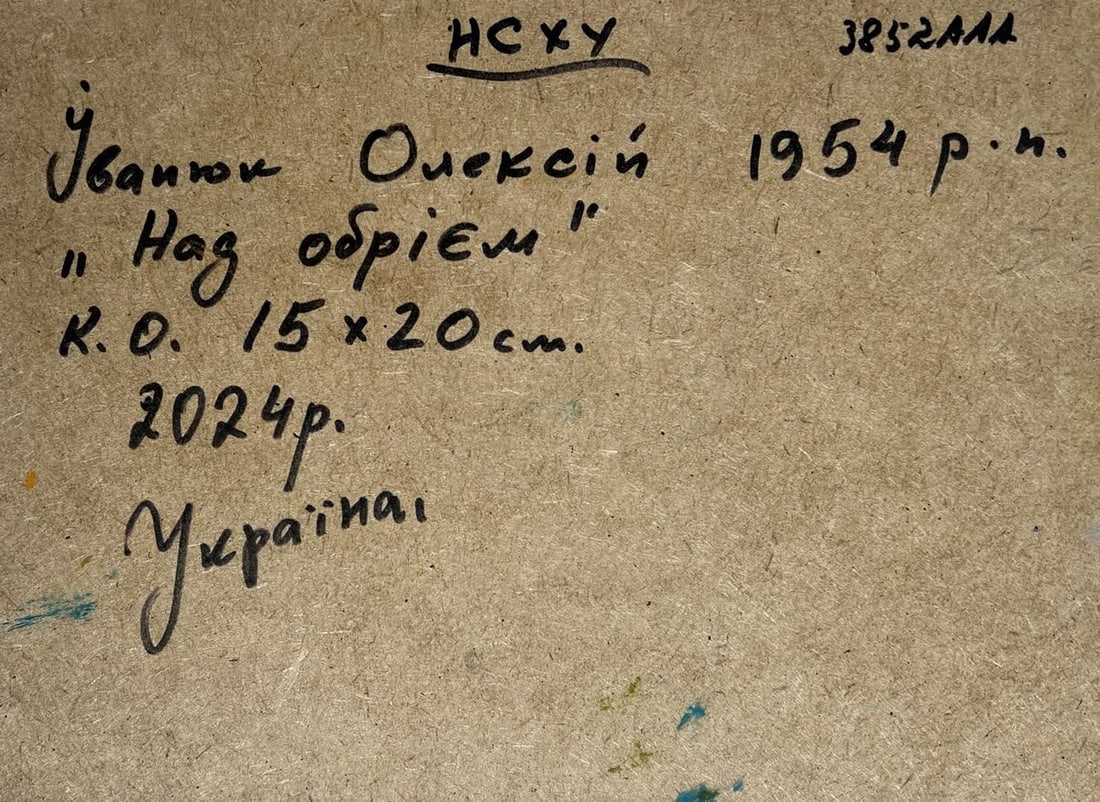 НСХУ 3852АЛА
Іванюк Олексій 1954 р.н.
„Над обрієм"
К.О. 15×20см.
2024р.
Україна,